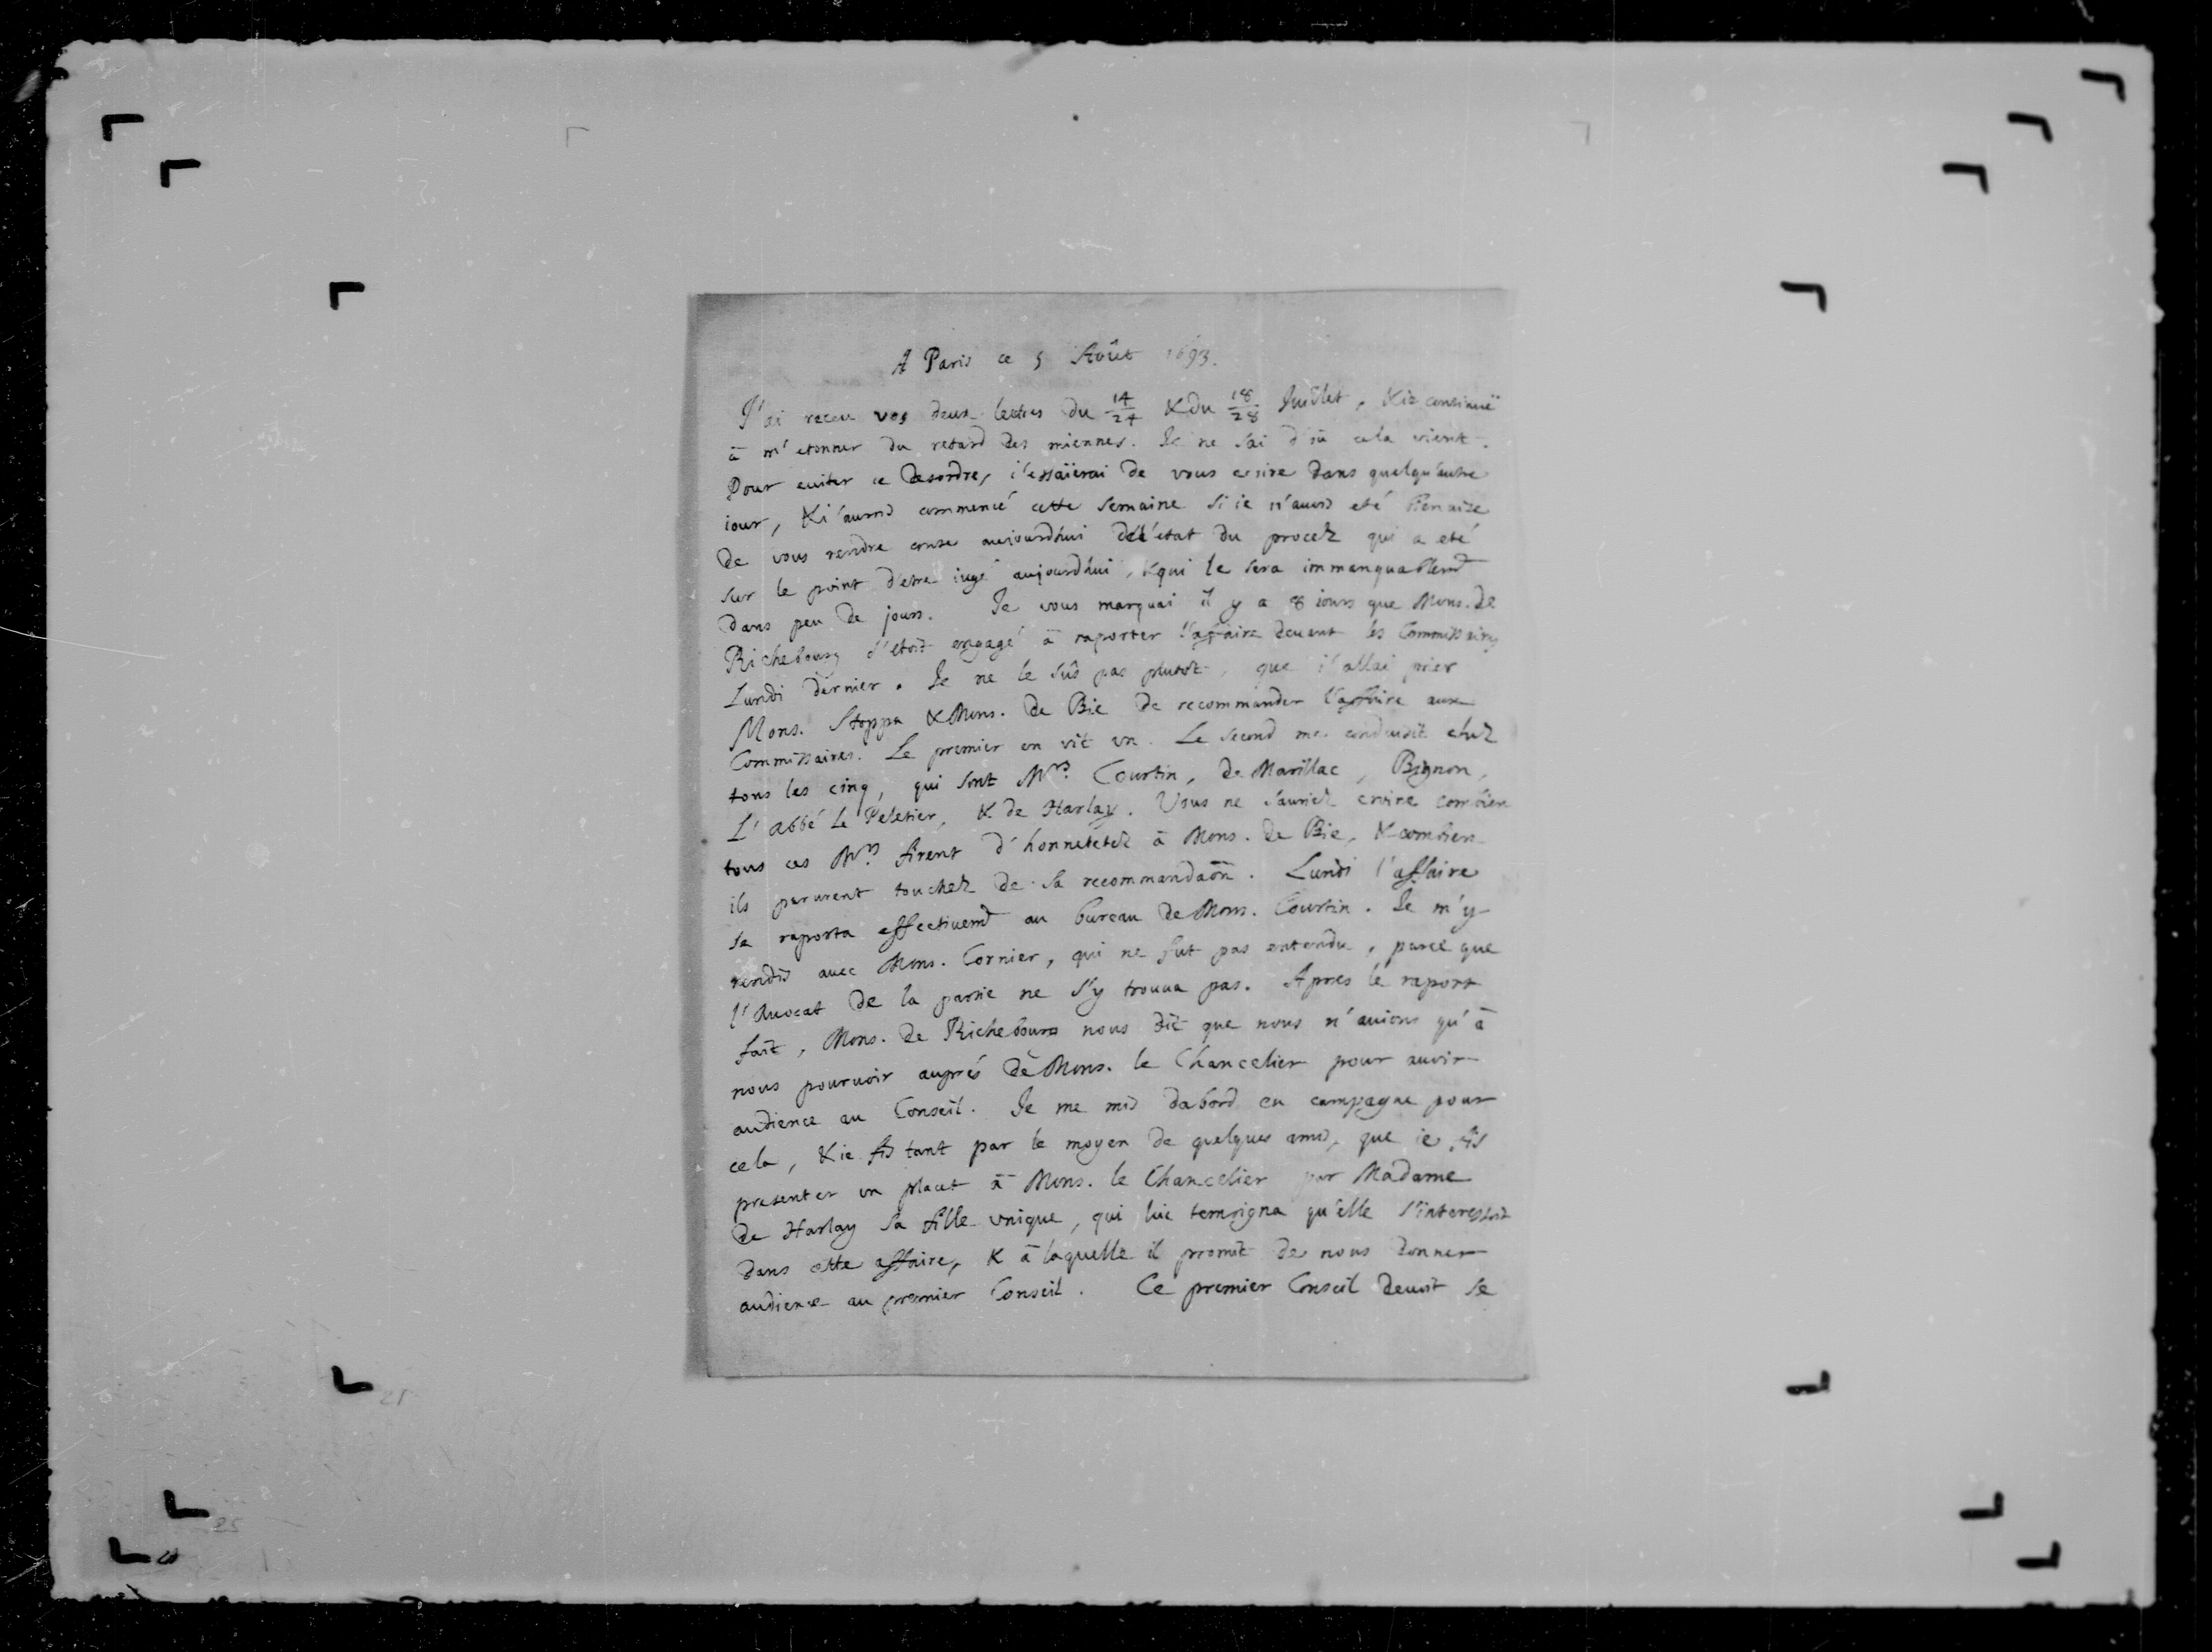 A Paris ce 5 Août 1693.
J'ai receu vos deux lettres du 14/24 & du 18/28 Juillet, & ie continuë
à m'etonner du retard des miennes. Je ne sai d'où cela vient.
Pour euiter ce desordre, i'essaïerai de vous ecrire dans quelqu'autre
iour, & i'aurois commencé cette semaine si ie n'auois eté bienaize
de vous rendre conte aujourdhui de l'etat du procez qui a eté
sur le point d'etre iugé aujourdhui, & qui le sera immanquablemt
dans peu de jours. Je vous marquai il y a 8 iours que Mons. de
Richebourg s'etoit engagé à raporter l'affaire deuant les Commissaires
Lundi dernier. Je ne le sûs pas plutôt, que i'allai prier
Mons. Stoppa & Mons. de Bie de recommander l'affaire aux
Commissaires. Le premier en vit un. Le second me conduisit chez
tous les cinq, qui sont Mrs. Courtin, de Marillac, Bignon,
L'Abbé Le Peletier, & de Harlay. Vous ne sauriez croire combien
tous ces Mrs. firent d'honnetetez à Mons. de Bie, & combien
ils parurent touchez de sa recommandaõn. Lundi l'affaire
se raporta effectiuemt au bureau de Mons. Courtin. Je m'y
rendis auec Mons. Cornier, qui ne fut pas entendu, parce que
l'Auocat de la partie ne s'y trouua pas. Apres le raport
fait, Mons. de Richebourg nous dit que nous n'auions qu'à
nous pouruoir auprés de Mons. le Chancelier pour auoir
audience au Conseil. Je me mis dabord en campagne pour
cela, & ie fis tant par le moyen de quelques amis, que ie fis
presenter un placet à Mons. le Chancelier par Madame
de Harlay sa fille unique, qui lui temoigna qu'elle s'interessoit
dans cette affaire, & à laquelle il promit de nous donner
audience au premier Conseil. Ce premier Conseil deuoit se
21
25